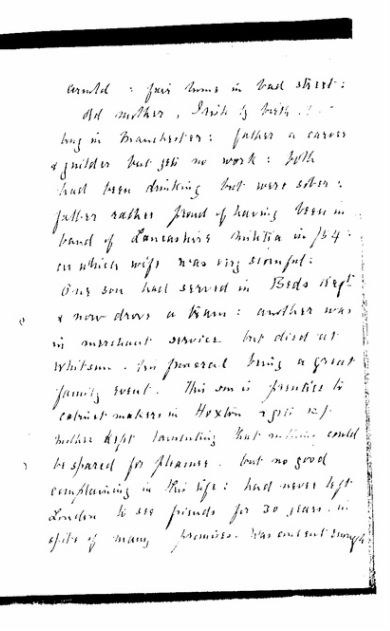 Arnold : fair home in bad street :
old mother, Irish by birth
long in Manchester : father a carver
& guilder but gets no work : both
had been drinking but were sober :
father rather proud of having been in
band of Lancashire militia in /54 :
on which wife was very scornful :
One son had served in Beds Regt
& now drove a tram : another was
in merchant service but died at
Whitsun. his funeral being a great
family event. This son is prentice to
cabinet makers in Hoxton & gets 12/-
mother kept lamenting that nothing could
be spared for pleasure. but no good
complaining in this life : had never left
London to see friends for 30 years. in
spite of many promises. Was content enough